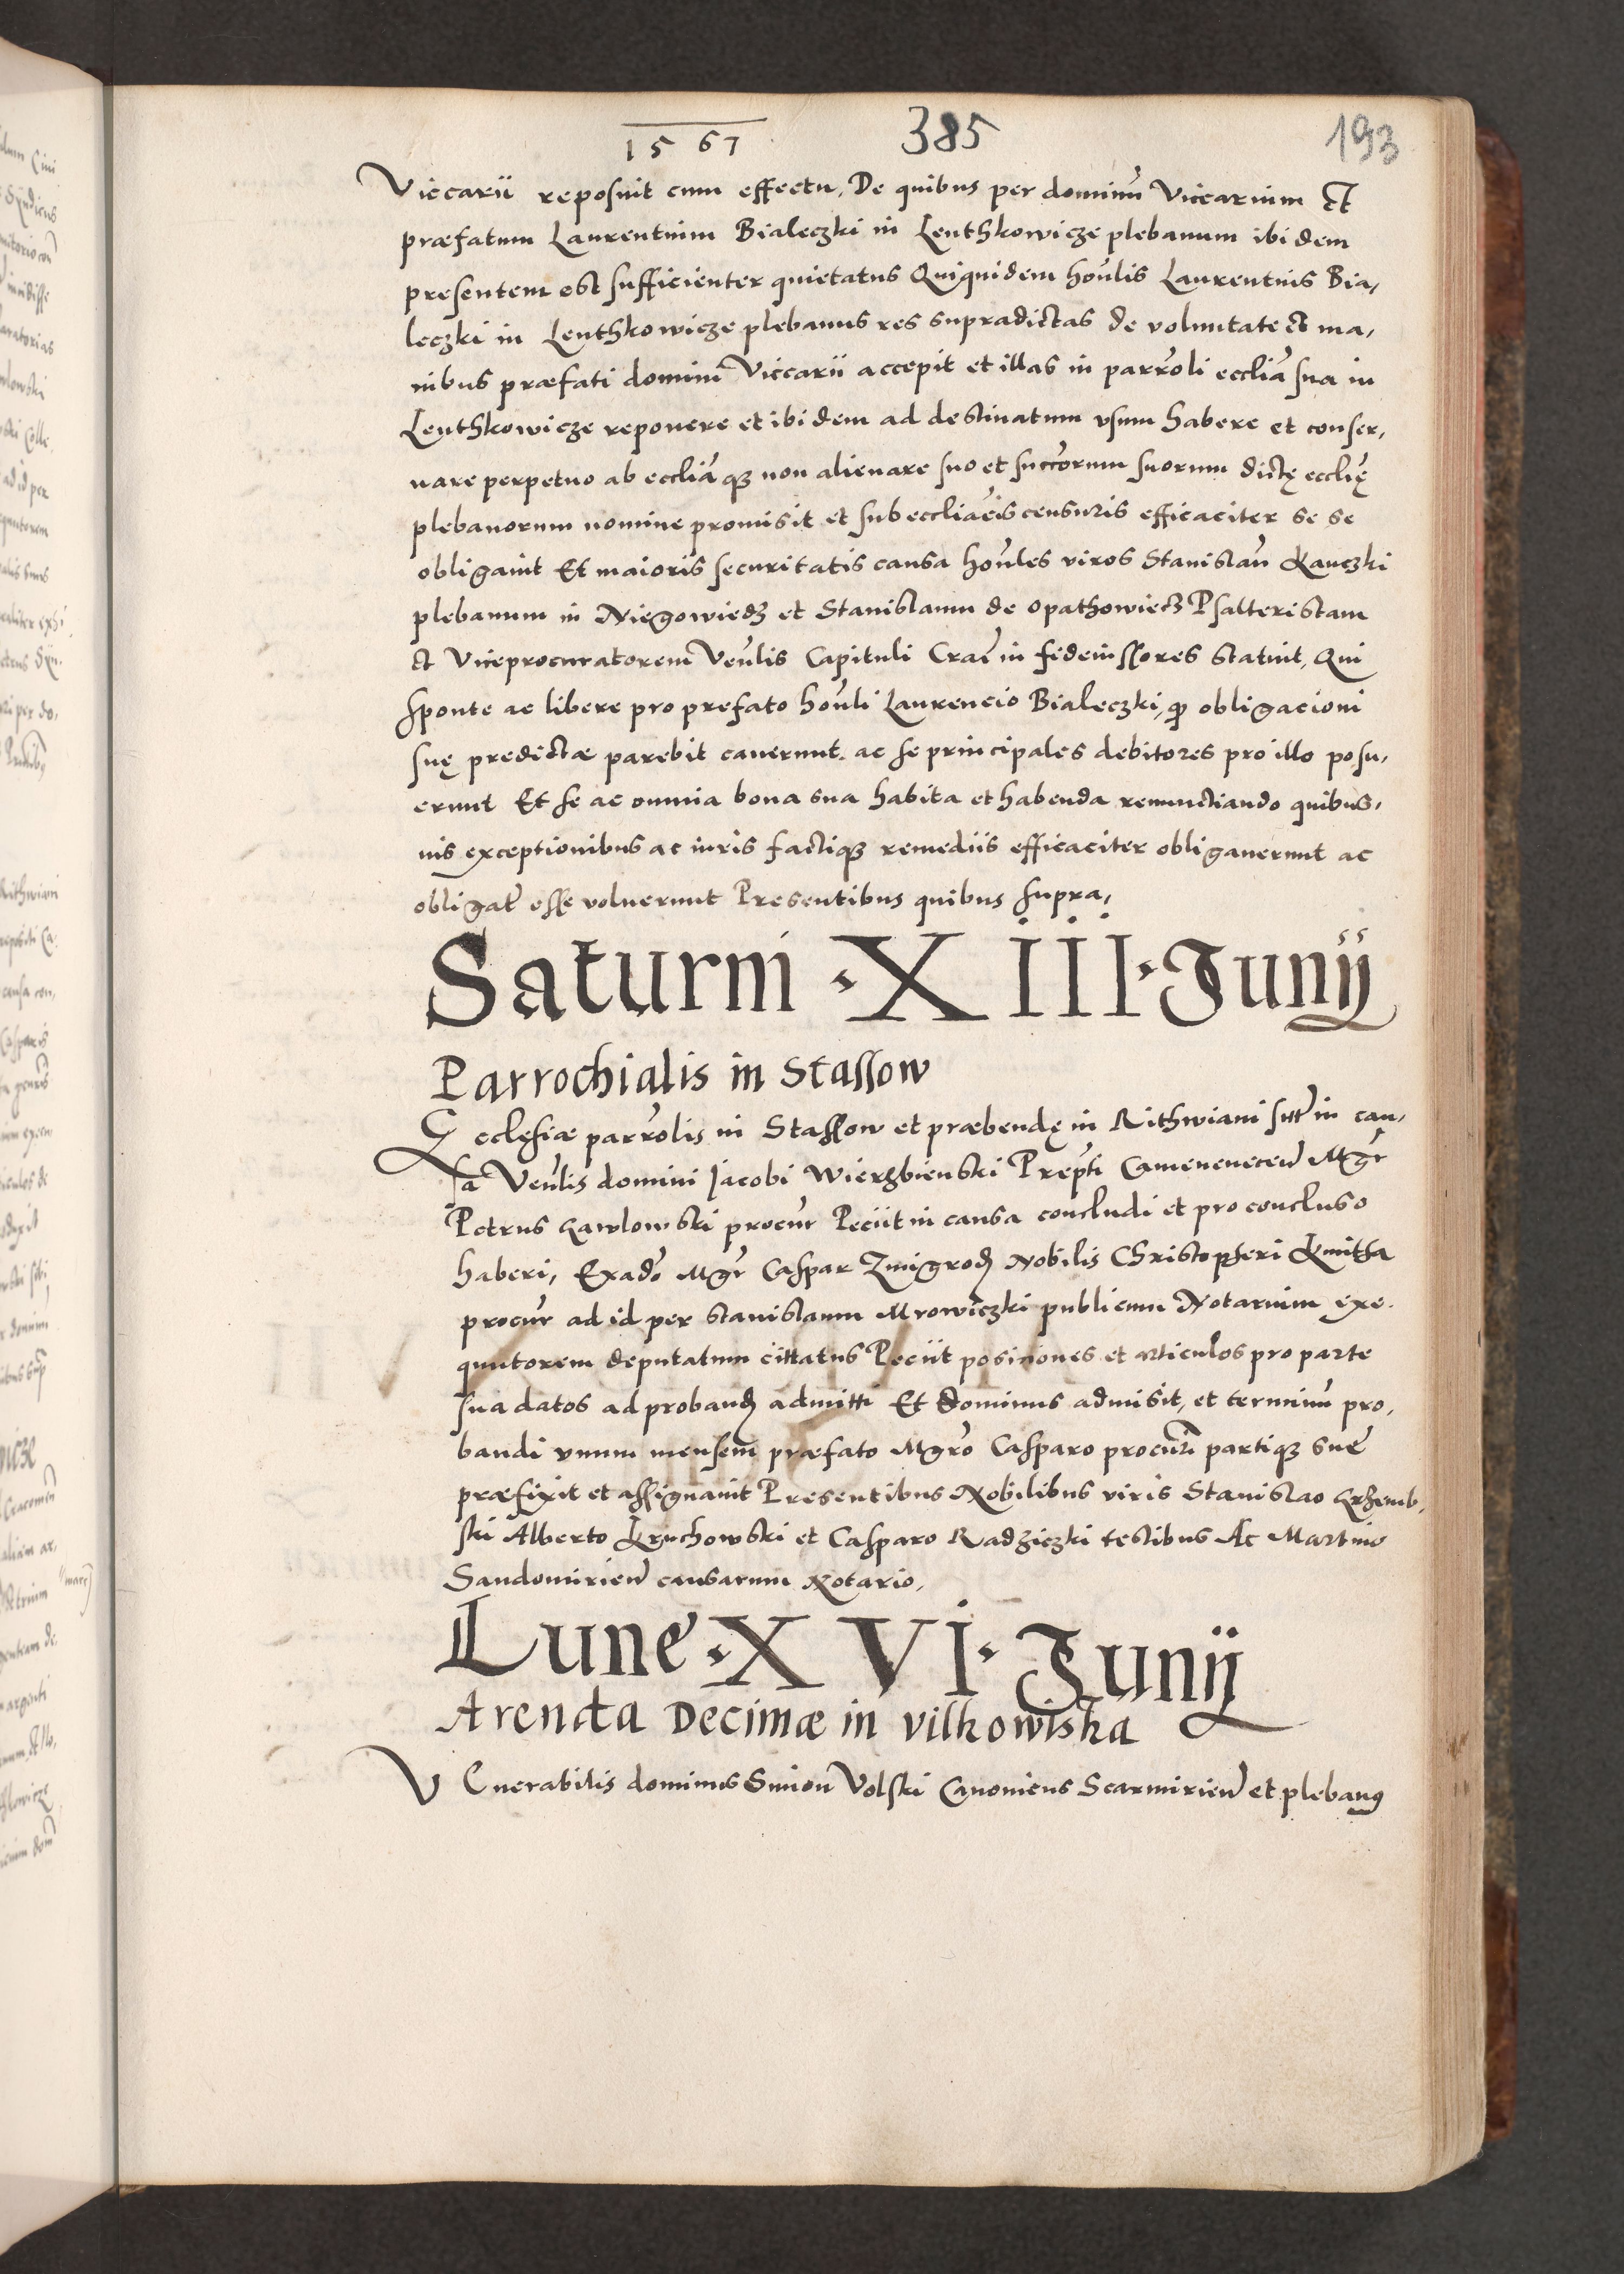 1567 385 193
Viccarii reposuit cum effectu, De quibus per dominũ Vicearium et
præfatum Laurentium Bialeczki in Lenthkowicze plebanum ibidem
presentem est sufficienter quietatus Quiquidem hoñlis Laurentius Bia,
leczki in Lenthkowicze plebanus res supradictas de voluntate et ma,
nibus præfati domini Viccarii accepit et illas in parrõli eccliã sua in
Lenthkowicze reponere et ibidem ad destinatum vsum habere et conser,
uare perpetuo ab eccliã qz non alienare suo et succõrum suorum dictę ecclię
plebanorum nomine promisit et sub eccliãcis censuris efficaciter se se
obligauit Et maioris securitatis causa hoñles viros Stanislaũ Kauczki
plebanum in Niegowiedz et Stanislaum de Opathowiecz Psalteristam
et Viceprocuratorem Veñlis Capituli Craĩ in fideiussores statuit, Qui
sponte ac libere pro prefato hoñli Laurencio Bialeczki, qp obligacioni
suę predictæ parebit cauerunt. ac se principales debitores pro illo posu,
erunt Et se ac omnia bona sua habita et habenda renunctiando quibus,
uis exceptionibus ac iuris factiqz remediis efficaciter obligauerunt ac
obligat̃ esse voluerunt Presentibus quibus supra,
Saturni · X III · Junij
Parrochialis in Stassow
E cclesiæ parrõlis in Stassow et præbendę in Rithwiani sit̃ in cau,
sa Veñlis domini Jacobi Wierzbienski Prep̃ti Camenecen̄ Mg̃r
Petrus Gawlowski procur̃ Peciit in causa concludi et pro concluso
haberi, Exad̃o Mg̃r Caspar Zmigrod Nobilis Christopheri Kmitha
procur̃ ad id per Stanislaum Mrowiczki publicum Notarium exe.
quutorem deputatum cittatus Peciit posiciones et articulos pro parte
sua datos ad proband admitti Et Dominus admisit, et terminũ pro,
bandi vnum mensem præfato Mgr̃o Casparo procurĩ partiqz suę
præfixit et assignauit Presentibus Nobilibus viris Stanislao Grzemb,
ski Alberto Kruchowski et Casparo Radziczki testibus Ac Martino
Sandomirien̄ causarum Notario,
Lune · X VI · Junij
Arenda Decimæ in Vilkowiska
V Enerabilis dominus Simon Volski Canonicus Scarmirien̄ et plebanus